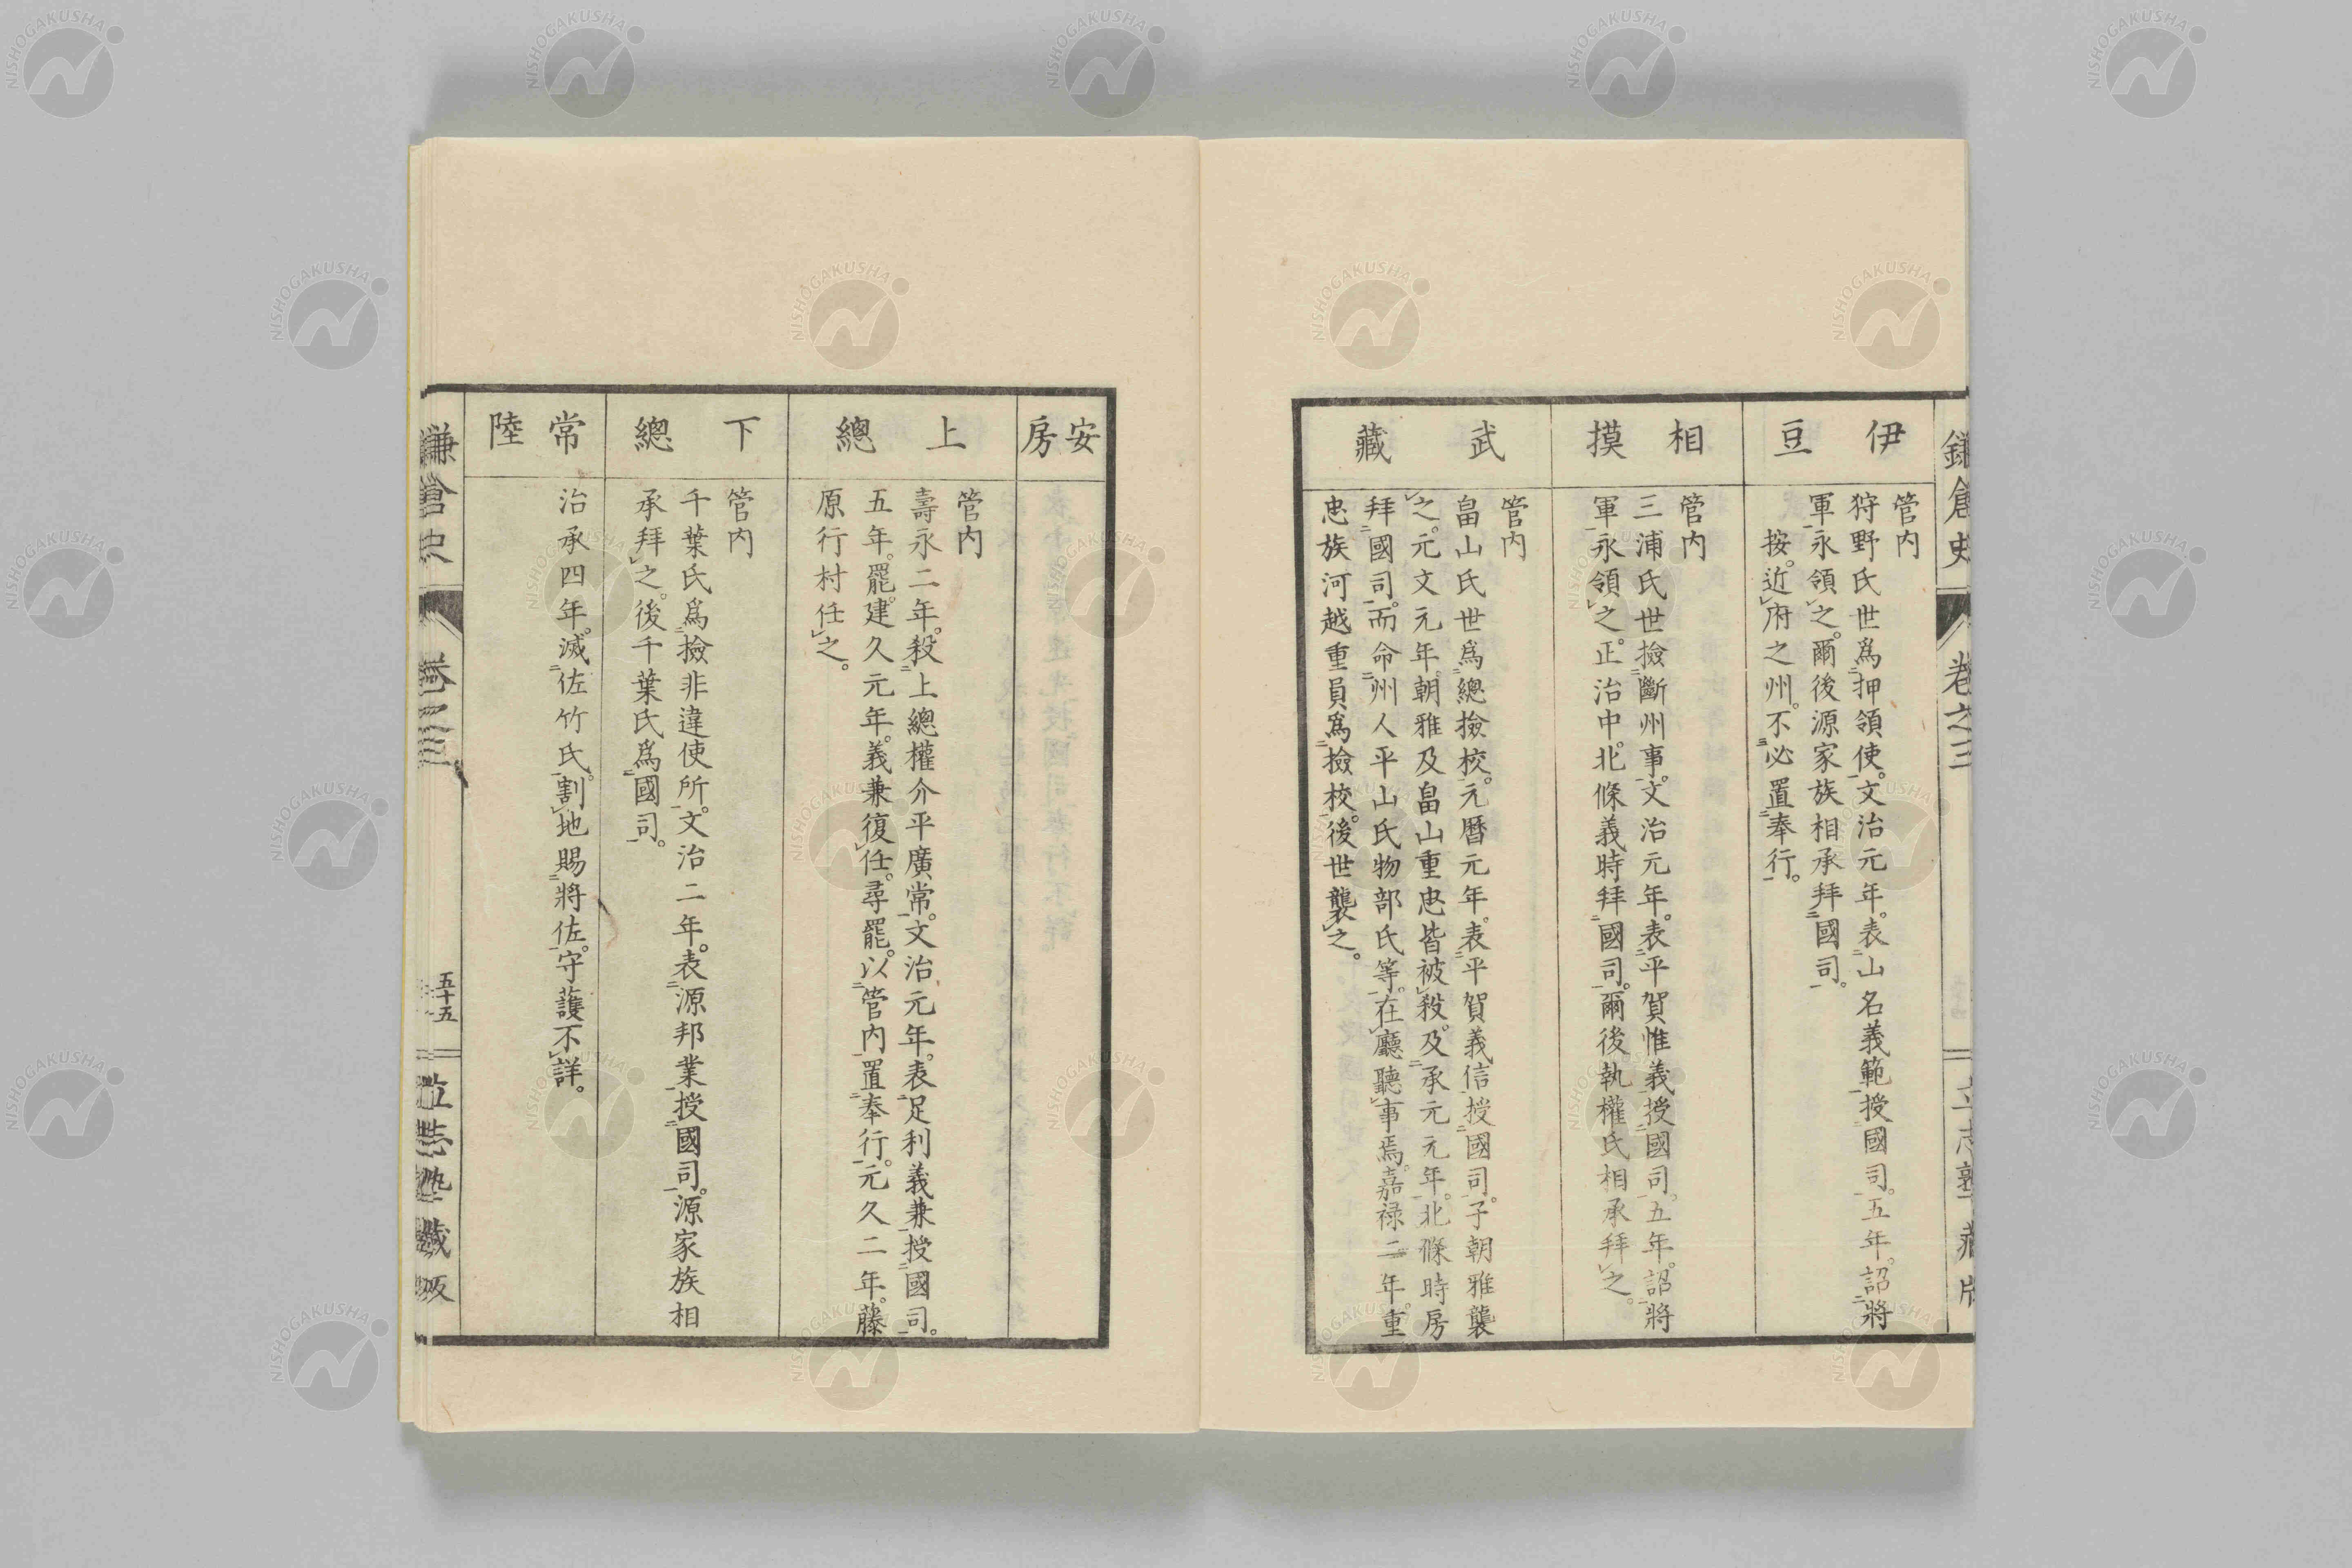 鎌倉史
卷之三
立志塾藏版
伊豆
管内
狩野氏世爲押領使。文治元年。表山名義範授國司。五年。詔將
軍永領之。爾後源家族相承拜國司。
按。近府之州。不必置奉行。
相摸
管内
三浦氏世撿斷州事。文治元年。表平賀惟義授國司。五年。詔將
軍永領之。正治中。北條義時拜國司。爾後執權氏相承拜之。
武藏
管内
畠山氏世爲總撿校。元曆元年。表平賀義信授國司。子朝雅襲
之。元文元年。朝雅及畠山重忠皆被殺。及承元元年。北條時房
拜國司。而命州人平山氏物部氏等。在廳聽事焉。嘉禄二年重
忠族河越重員爲撿校。後世襲之。
安房
上總
管内
壽永二年。殺上總權介平廣常。文治元年。表足利義兼授國司。
五年。罷。建久元年。義兼復任。尋罷。以管内置奉行。元久二年。藤
原行村任之。
下總
管内
千葉氏爲撿非違使所。文治二年。表源邦業授國司。源家族相
承拜之。後千葉氏爲國司。
常陸
治承四年。滅佐竹氏。割地賜將佐。守護不詳。
鎌倉史
卷之三
五十五
立志塾藏版
NISHOGAKUSHA